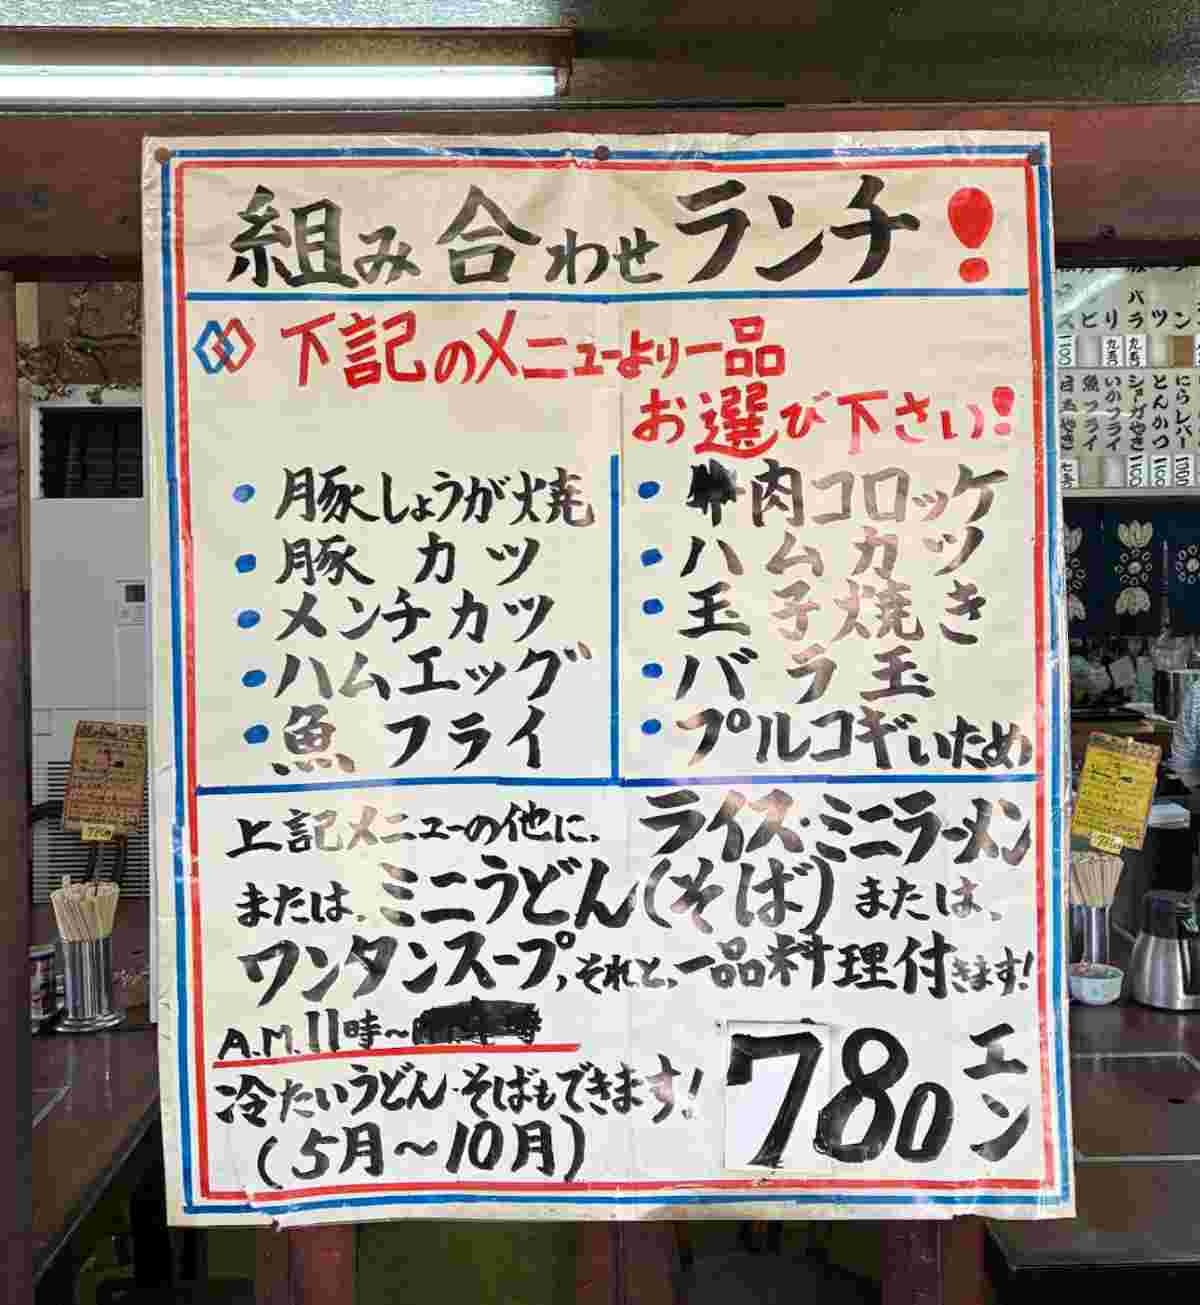 組み合わせランチ!
下記のメニューより一品
お選び下さい!
・豚しょうが焼
・豚カツ
・メンチカツ
・ハムエッグ
・魚フライ
・牛肉コロッケ
・ハムカツ
・玉子焼き
・バラ玉
・プルコギいため
上記メニューの他に、ライス・ミニラーメン
または、ミニうどん(そば)または、
ワンタンスープ、それと、一品料理付きます!
A.M.11時〜
冷たいうどん・そばもできます!
(5月〜10月)
780エン
魚フライ
いかフライ
ショーガやき
とんかつ
にらレバー